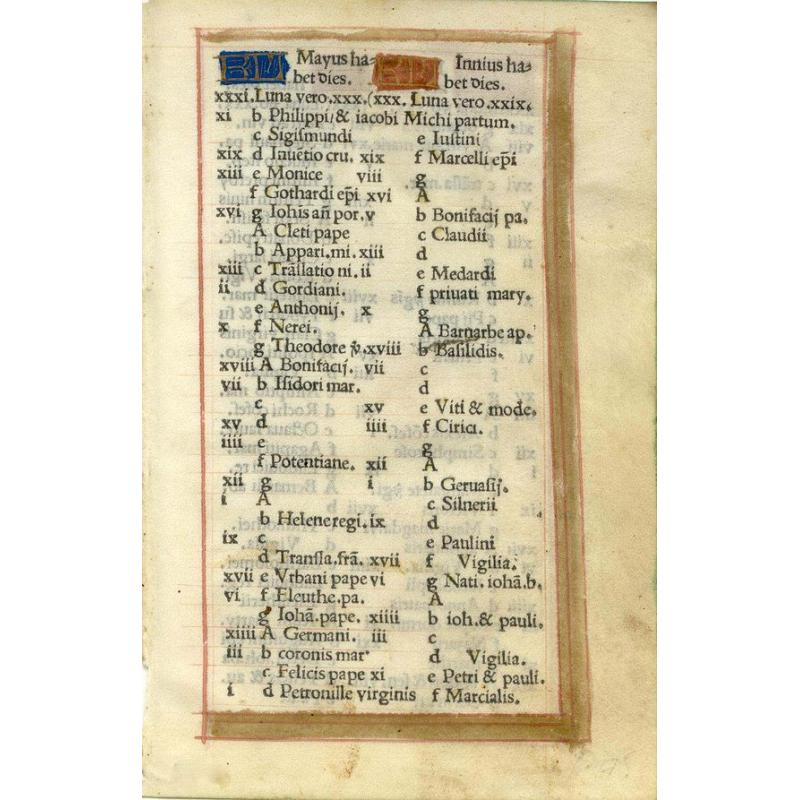 KL Mayus ha= KL Innius ha=
bet dies. bet dies.
xxxi.Luna vero.xxx.(xxx. Luna vero.xxix.
xi b Philippi/& iacobi Michi partum.
c Sigismundi e Iustini
xix d Inuētio cru. xix f Marcelli ep̄i
xiii e Monice viii g
f Gothardi ep̄i xvi A
xvi g Iohis añ por. v b Bonifacij pa.
A Cleti pape c Claudii
b Appari.mi. xiii d
xiii c Trāslatio ni. ii e Medardi
ii d Gordiani. f priuati mary.
e Anthonij. x g
x f Nerei. A Barnarbe ap.
g Theodore v̄. xviii b Basilidis.
xviii A Bonifacij. vii c
vii b Isidori mar. d
c xv e Viti & mode.
xv d iiii f Cirici.
iiii e g
f Potentiane. xii A
xii g i b Geruasij.
i A c Silnerii
b Helene regi. ix d
ix c e Paulini
d Transla.frā. xvii f Vigilia.
xvii e Vrbani pape vi g Nati. iohā.b.
vi f Eleuthe.pa. A
g Iohā.pape. xiiii b ioh.& pauli.
xiiii A Germani. iii c
iii b coronis mar. d Vigilia.
c Felicis pape xi e Petri & pauli.
i d Petronille virginis f Marcialis.